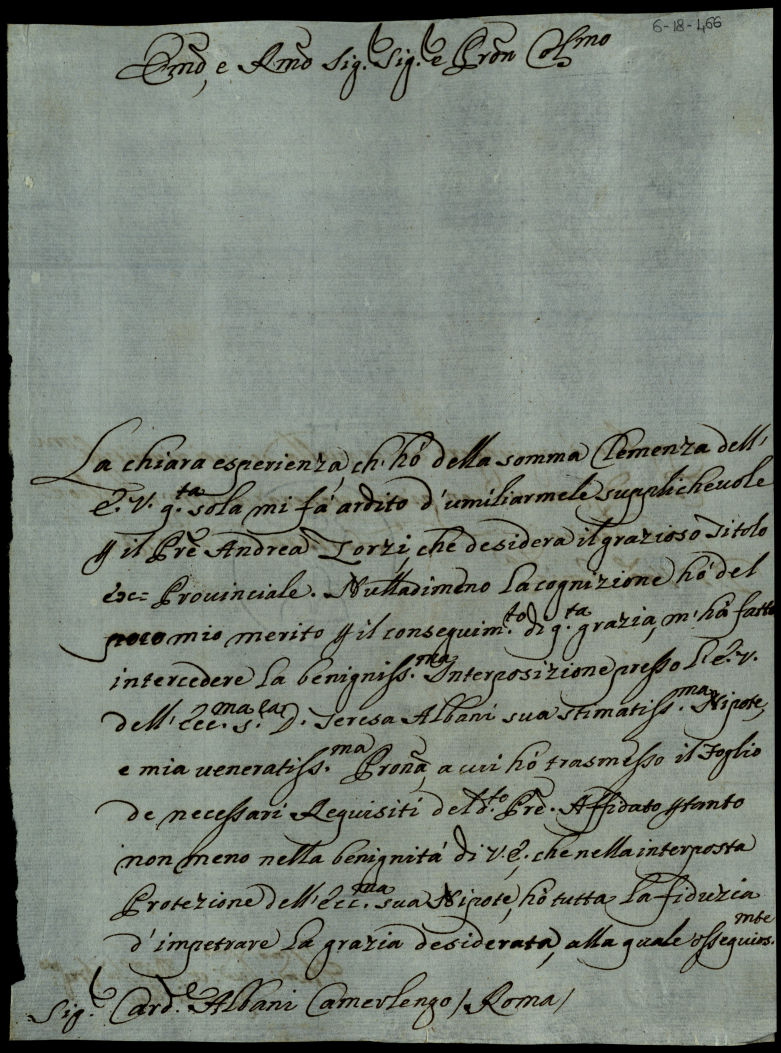 6-18-466
Em̃o, e Rm̃o Sig.e Sig.e e Prõn Col.mo
La chiara esperienza, ch' hò della somma Clemenza dell'
E. V. q.ta sola mi fà ardito d'umiliarmele supplichevole
p il Prẽ Andrea Torzi, che desidera il grazioso Titolo
Ex= Provinciale. Nulladimeno la cognizione hò del
poco mio merito p il conseguim.to di q.ta grazia, m'hà fatto
intercedere la benigniss.ma Interposizione presso l'E. V.
dell'Ecc.ma S.ra D. Teresa Albani sua stimatiss.ma Nipote,
e mia veneratiss.ma Prõna, a cui hò trasmesso il Foglio
de necessari Requisiti del d.to Prẽ. Affidato ptanto
non meno nella benignità di V. E., che nella interposta
Protezione dell'Ecc.ma sua Nipote, hò tutta la fiduzia
d'impetrare la grazia desiderata, alla quale ossequios.mte
Sig.e Card.e Albani Camerlengo / Roma /